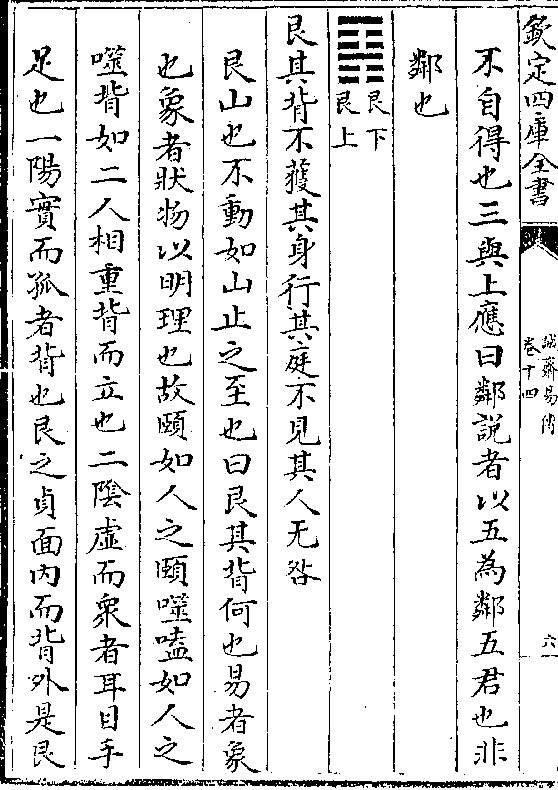 欽定四庫全書
誠齋易傳
卷十四
六
不自得也三與上應曰鄰說者以五為鄰五君也非
鄰也
艮下
艮上
艮其背不獲其身行其庭不見其人无咎
艮山也不動如山止之至也曰艮其背何也易者象
也象者狀物以明理也故頤如人之頤噬嗑如人之
噬背如二人相重背而立也二陰虛而衆者耳目手
足也一陽實而孤者背也艮之貞面内而背外是艮